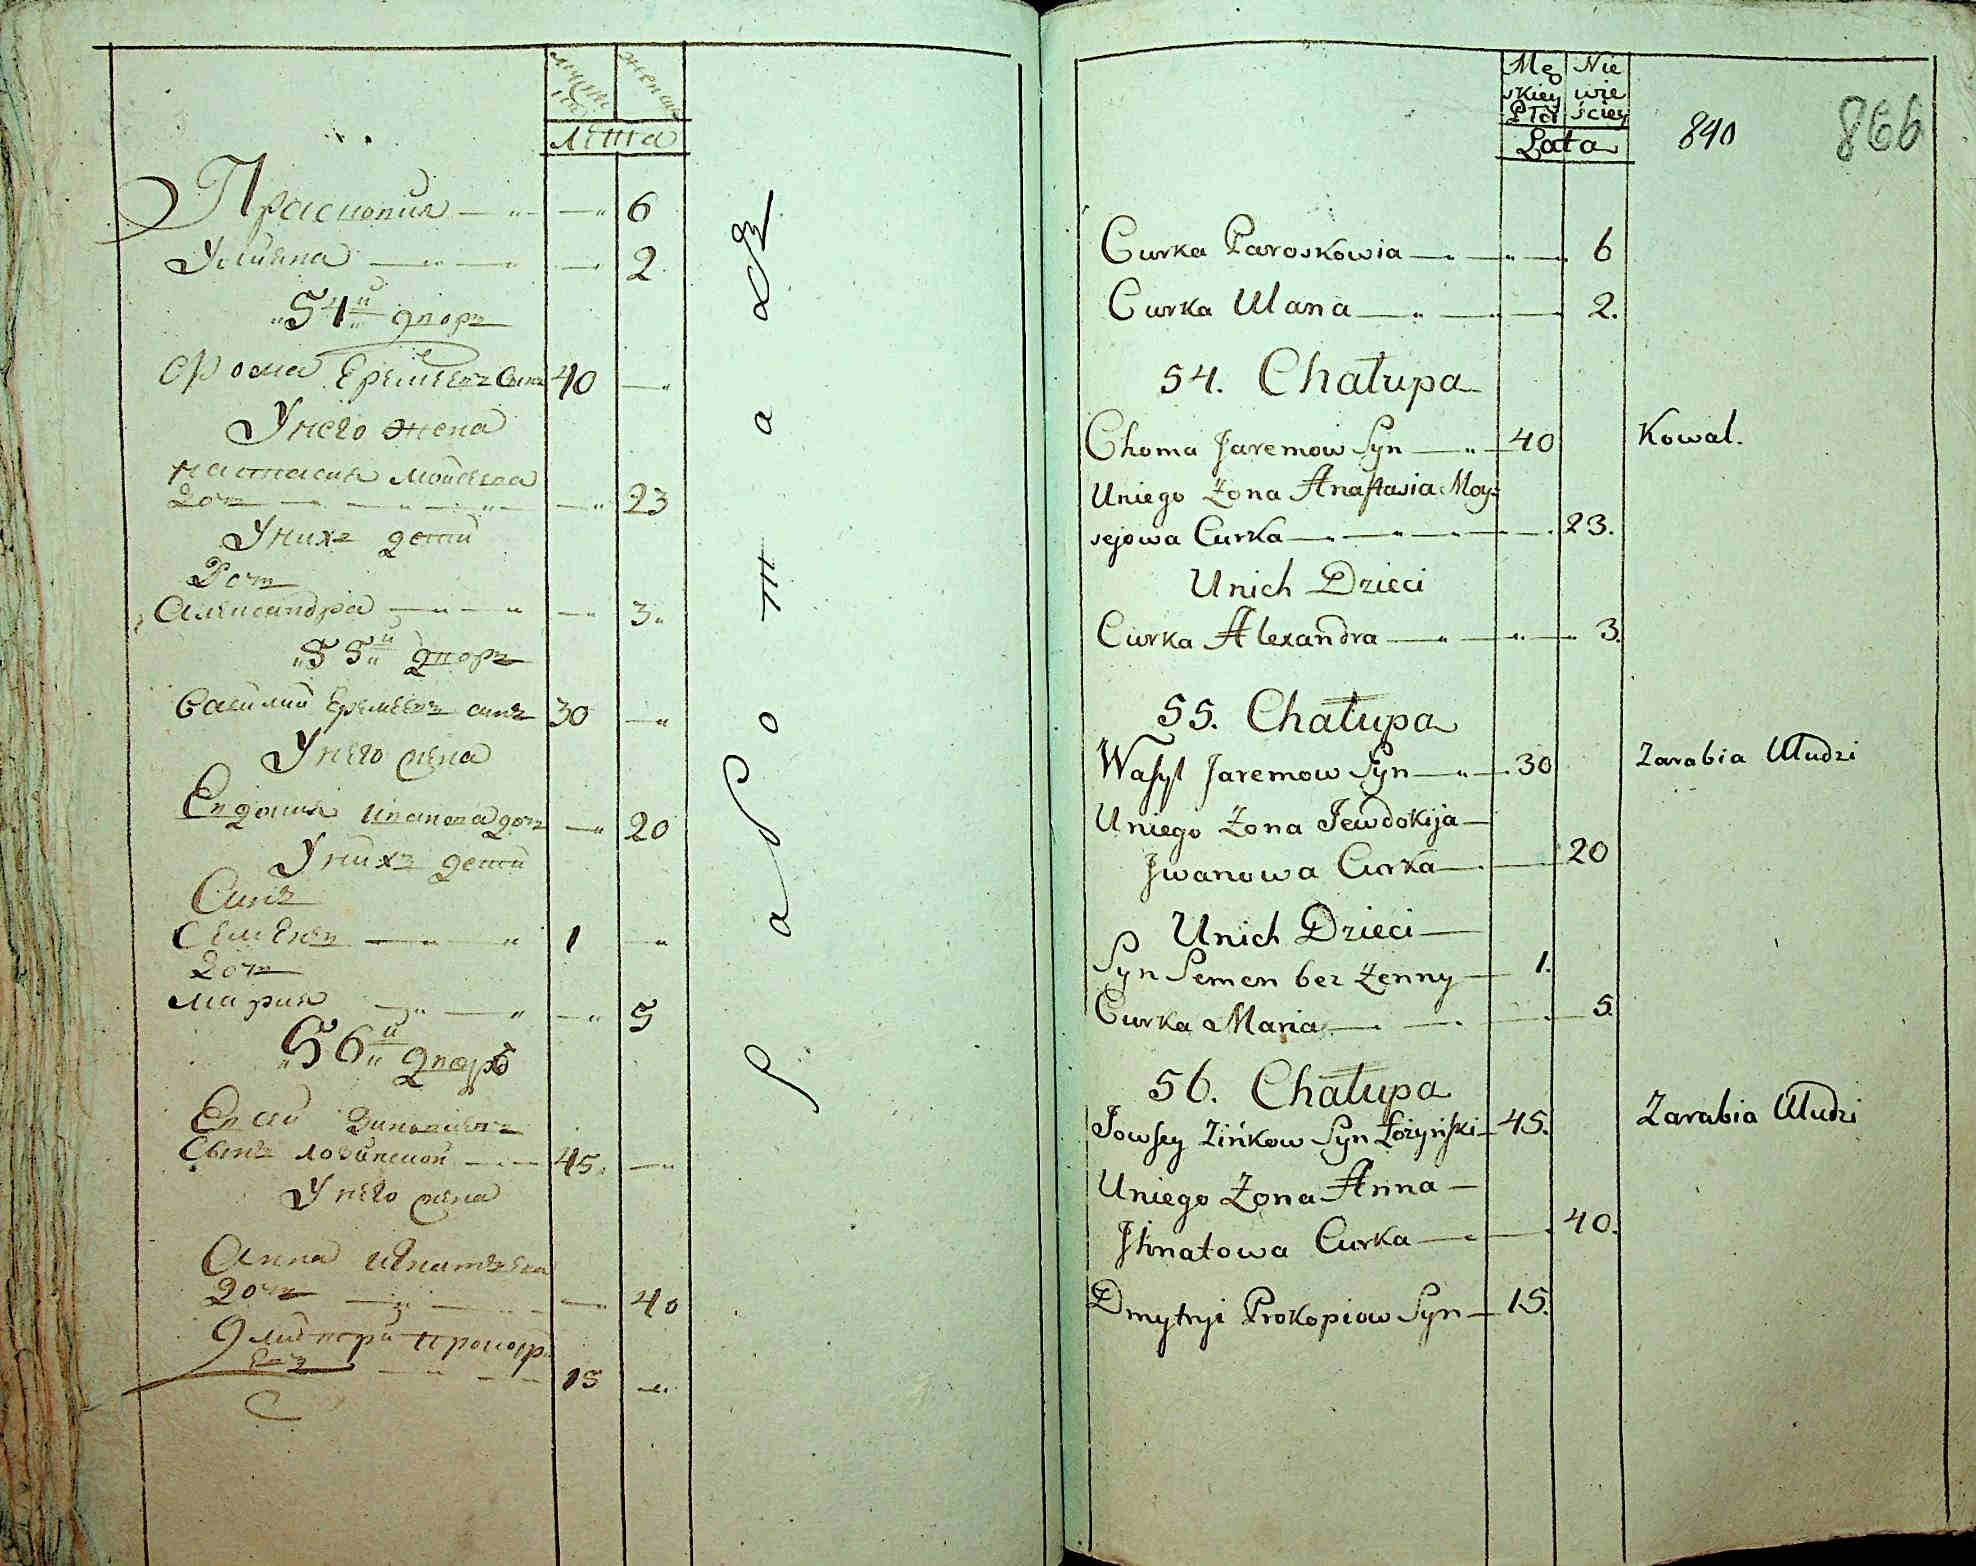 мужеск
женска
Лѣта
Праскопия 6
Улияна 2
54й дворъ
Фома Еремѣевъ Сынъ 40
У него жена
Настасия Мойсѣева
дочь 23
У нихъ дети
Дочь
Александра 3
55й дворъ
Василий Еремѣевъ сынъ 30
У него жена
Евдокия Иванова дочь 20
У нихъ дети
Синъ
Семѣнъ 1
дочь
Мария 5
56й дворъ
Евсей Зиновиевъ
Сынъ Лозинской 45
У него жена
Анна Игнатьева
дочь 40
Дмитрий Прокоф
евъ 15
Męskiey Płci
Niewieściey
Lata
840
866
Curka Paroskowia 6
Curka Ulana 2.
54. Chałupa
Choma Jaremow Syn 40 Kowal.
Uniego Żona Anastasia Moy=
sejowa Curka 23.
Unich Dzieci
Curka Alexandra 3.
55. Chałupa
Wasyl Jaremow Syn 30 Zarabia Uludzi
Uniego Żona Jewdokija
Jwanowa Curka 20
Unich Dzieci
Syn Semen bez Żenny 1.
Curka Maria 5.
56. Chałupa
Jowsey Zińkow Syn Łożyński 45. Zarabia Uludzi
Uniego Żona Anna
Jhnatowa Curka 40.
Dmytryi Prokopiow Syn 15.